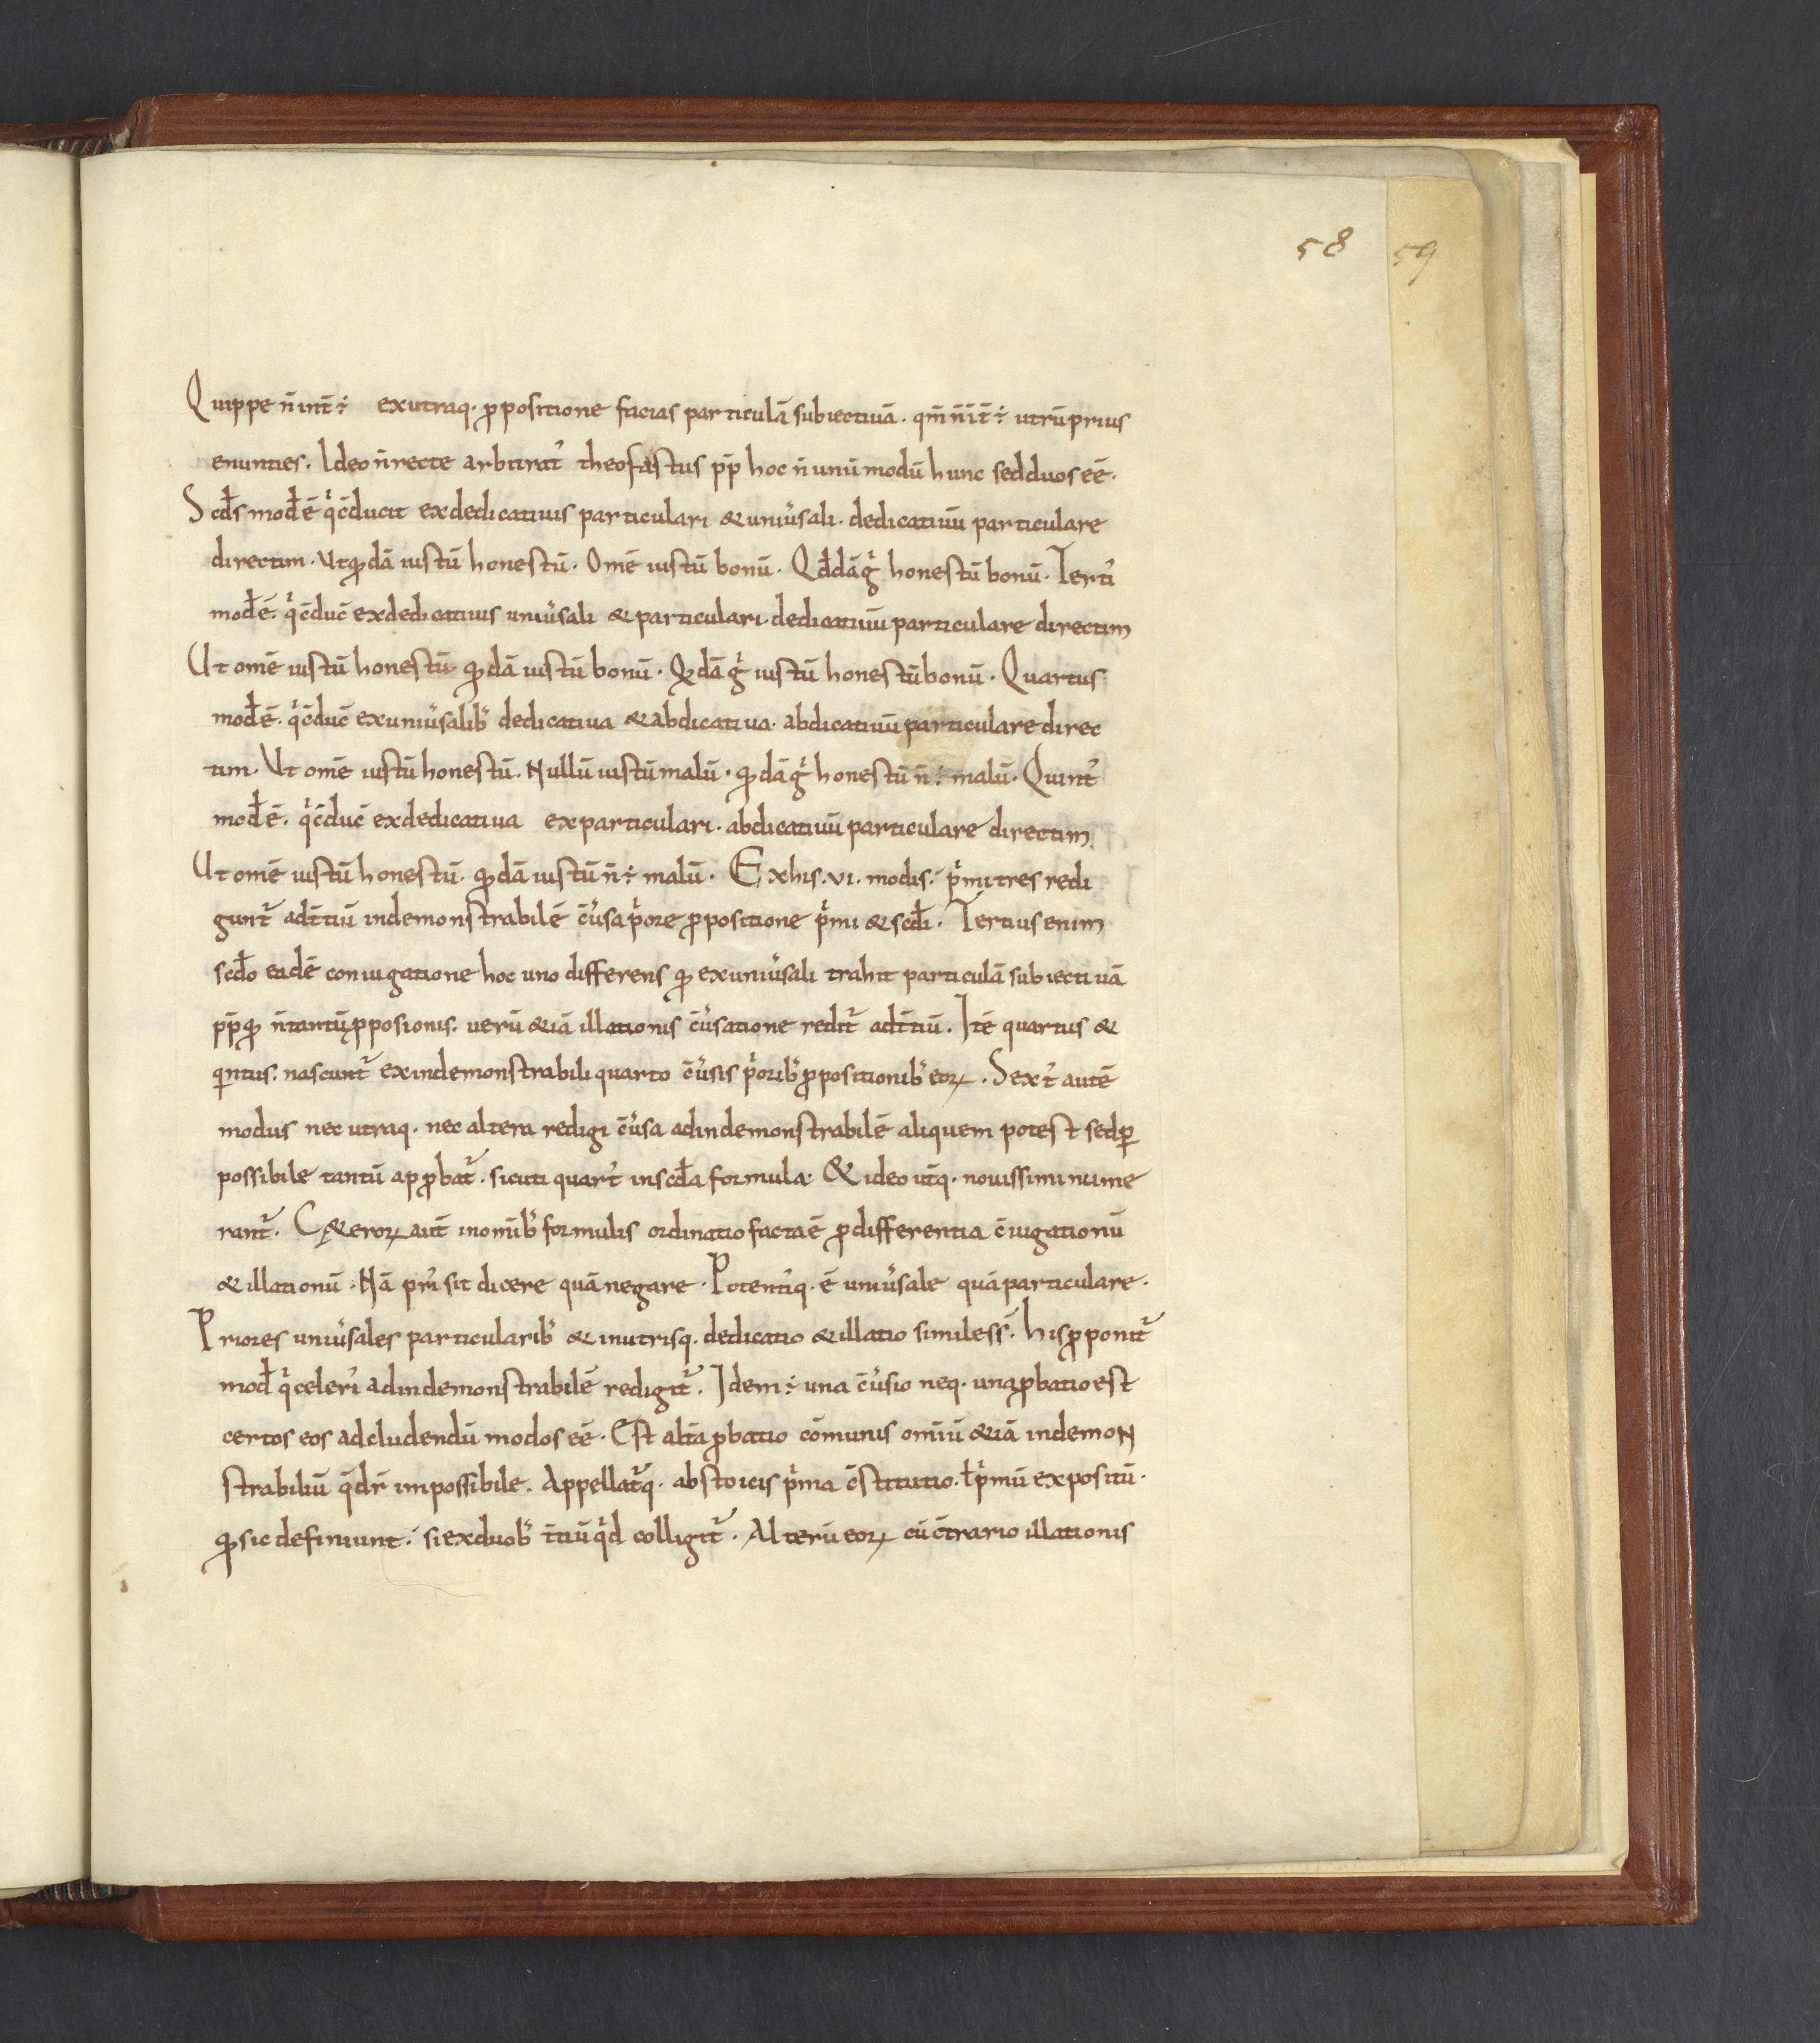 58 59
Quippe n̄ int̄÷ exutraq· ꝓpositione facias particulā subiectiuā · qm̄ n̄ īt̄÷ utrū prius
enunties · Ideo n̄ recte arbitrat᷒ theofastus pp̄ hoc n̄ unū modū hunc sed duos eē ·
Scd̄s mod̄ ē qͥ c̄ducit exdedicatiuis particulari & uniu͛sali · dedicatiuū particulare
directim · Ut qđdā iustū honestū · Omē iustū bonū · Qđdā gͥ honestū bonū · Terti᷒
mod̄ ē · qͥ c̄duc̄ exdedicatiuis uniu͛sali & particulari · dedicatiuū particulare directim
Ut omē iustū honestū · qđdā iustū bonū · Qđdā gͥ iustū honestū bonū · Quartus
mod̄ ē · qͥ c̄duc̄ exuniu͛salib᷒ dedicatiua & abdicatiua · abdicatiuū particulare direc
tim · Ut omē iustū honestū · Nullū iustū malū · qđdā gͥ honestū n̄÷ malū · Quint᷒
mod̄ ē · qͥ c̄duc̄ exdedicatiua exparticulari · abdicatiuū particulare directim
Ut omē iustū honestū · qđdā iustū n̄÷ malū · Exhis · vi · modis · pͥmi tres redi
gunt᷒ ad t̄tiū indemonstrabilē c̄u͛sa pͥore ꝓpositione pͥmi & scd̄i · Tertius enim
scd̄o eadē coniugatione hoc uno differens qđ exuniu͛sali trahit particulā subiectiuā
pp̄ qđ n̄ tantū ꝓposionis · uerū &iā illationis c̄u͛satione redit᷒ ad t̄tiū · Itē quartus &
qintus · nascunt᷒ exindemonstrabili quarto c̄u͛sis pͥorib᷒ ꝓpositionib᷒ eoꝝ · Sext᷒ autē
modus nec utraq· nec altera redigi c̄u͛sa adindemonstrabilē aliquem potest sed ꝑ
possibile tantū apꝓbat᷒ · sicuti quart᷒ inscd̄a formula · & ideo utq̄· nouissimi nume
rant᷒ · C&eroꝝ aut̄ inomīb᷒ formulis ordinatio facta ē ꝓ differentia c̄iugationū
& illationū · Nā pri᷒ sit dicere quā negare · Potenti᷒q· ē uniu͛sale quā particulare ·
Priores uniu͛sales particularib᷒ & inutrisq· dedicatio & illatio similes s̄ · his ꝓponit᷒
mod̄ qͥ celeri᷒ adindemonstrabilē redigit᷒ · Idem÷ una c̄u͛sio neq· una ꝓbatio est
certos eos adcludendū modos eē · Est alta ꝓbatio cōmunis omīū &iā indemoN
strabiliū q̄ dr̄ impossibile · Appellat᷒q· abstoicis pͥma c̄stitutio · ł pͥmū expositū ·
qđ sic definiunt · si exduob᷒ t̄tiū qͥd colligit᷒ · Alterū eoꝝ cū c̄trario illationis